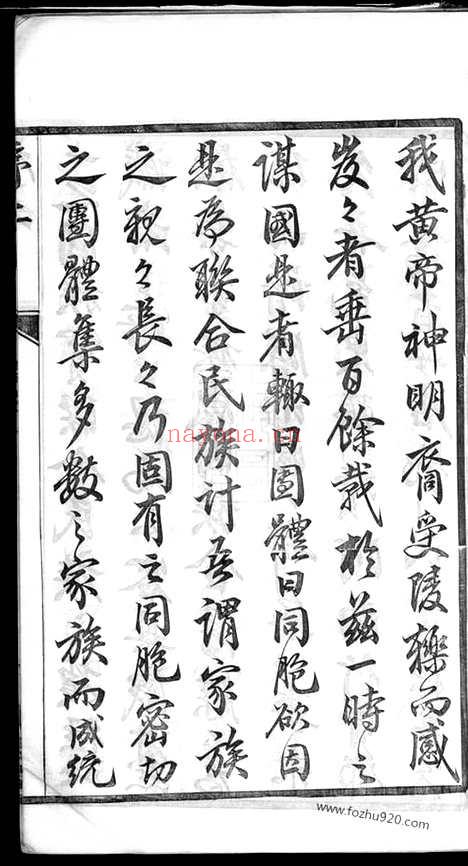 我黄帝神明裔受陵轢而感
岌々者垂百餘載於茲一時之
謀國是者輙曰團體曰同胞欲因
是為聯合民族計吾謂家族
之親々長々乃固有之同胞密切
之團體集多數之家族而成統
序二
nayona.cn
www.fozhu920.com